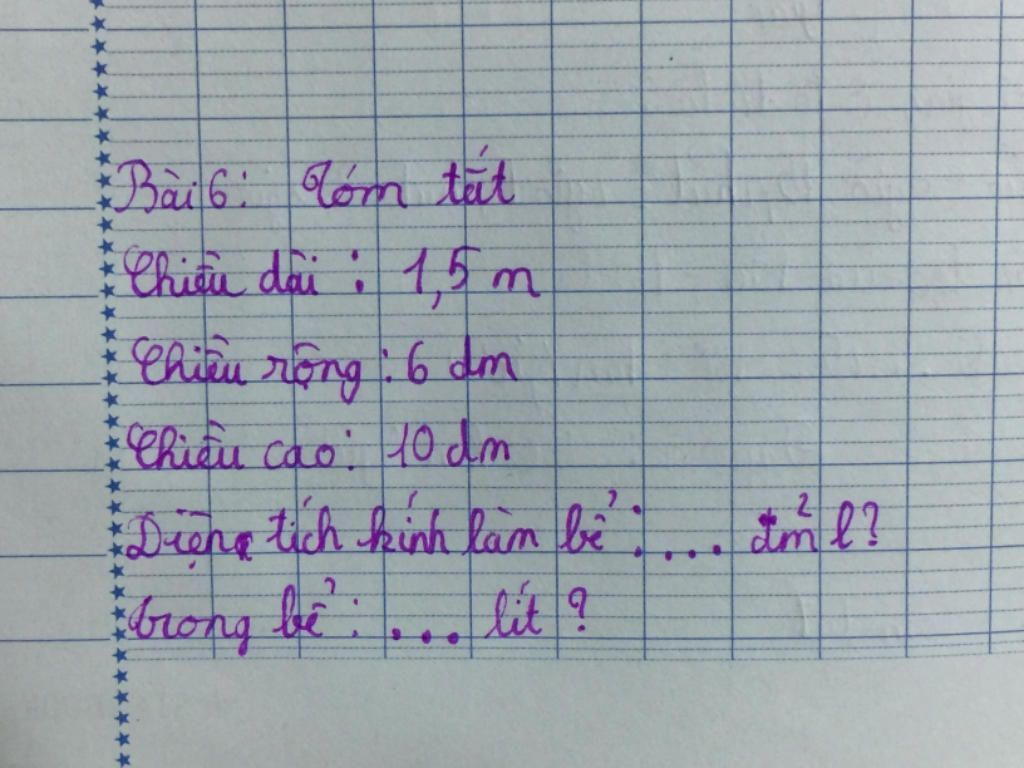 Bài 6: Tóm tắt
Chiều dài : 1,5 m
Chiều rộng : 6 dm
Chiều cao : 10 dm
Diện tích kính làm bể : ... dm² l?
trong bể : ... lít ?